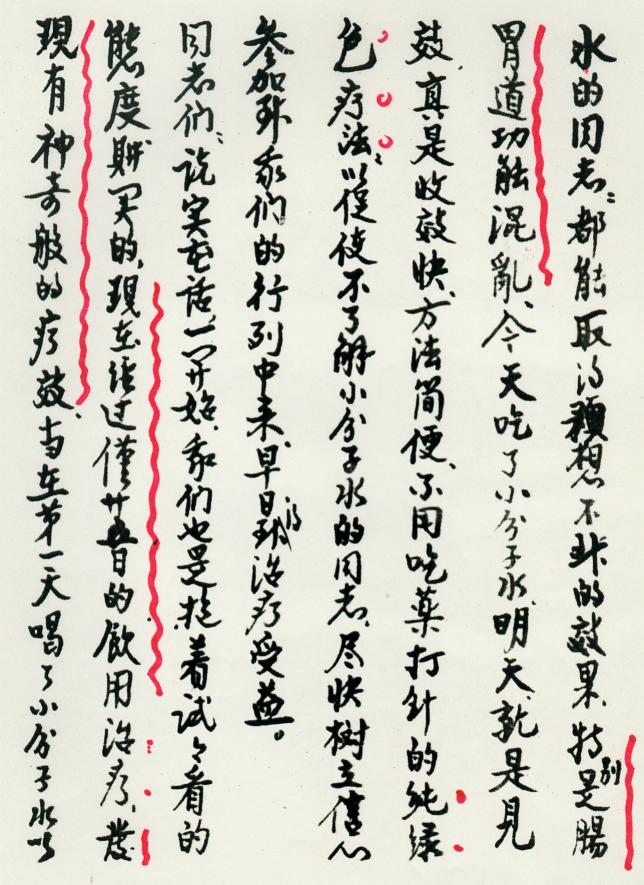 水的同志：都能取得预想不到的效果，特别是腸
胃道功能混亂、今天吃了小分子水，明天就是見
效，真是收效快、方法简便、不用吃药打针的纯绿
色疗法：以促使不了解小分子水的同志，尽快树立信心
参加到我们的行列中来，早日得到治疗受益。
同志们：说实在话，一开始，我们也是抱着试试看的
態度購买的，現在经过僅廿五日的飲用治疗，發
現有神奇般的疗效，当在第一天喝了小分子水以